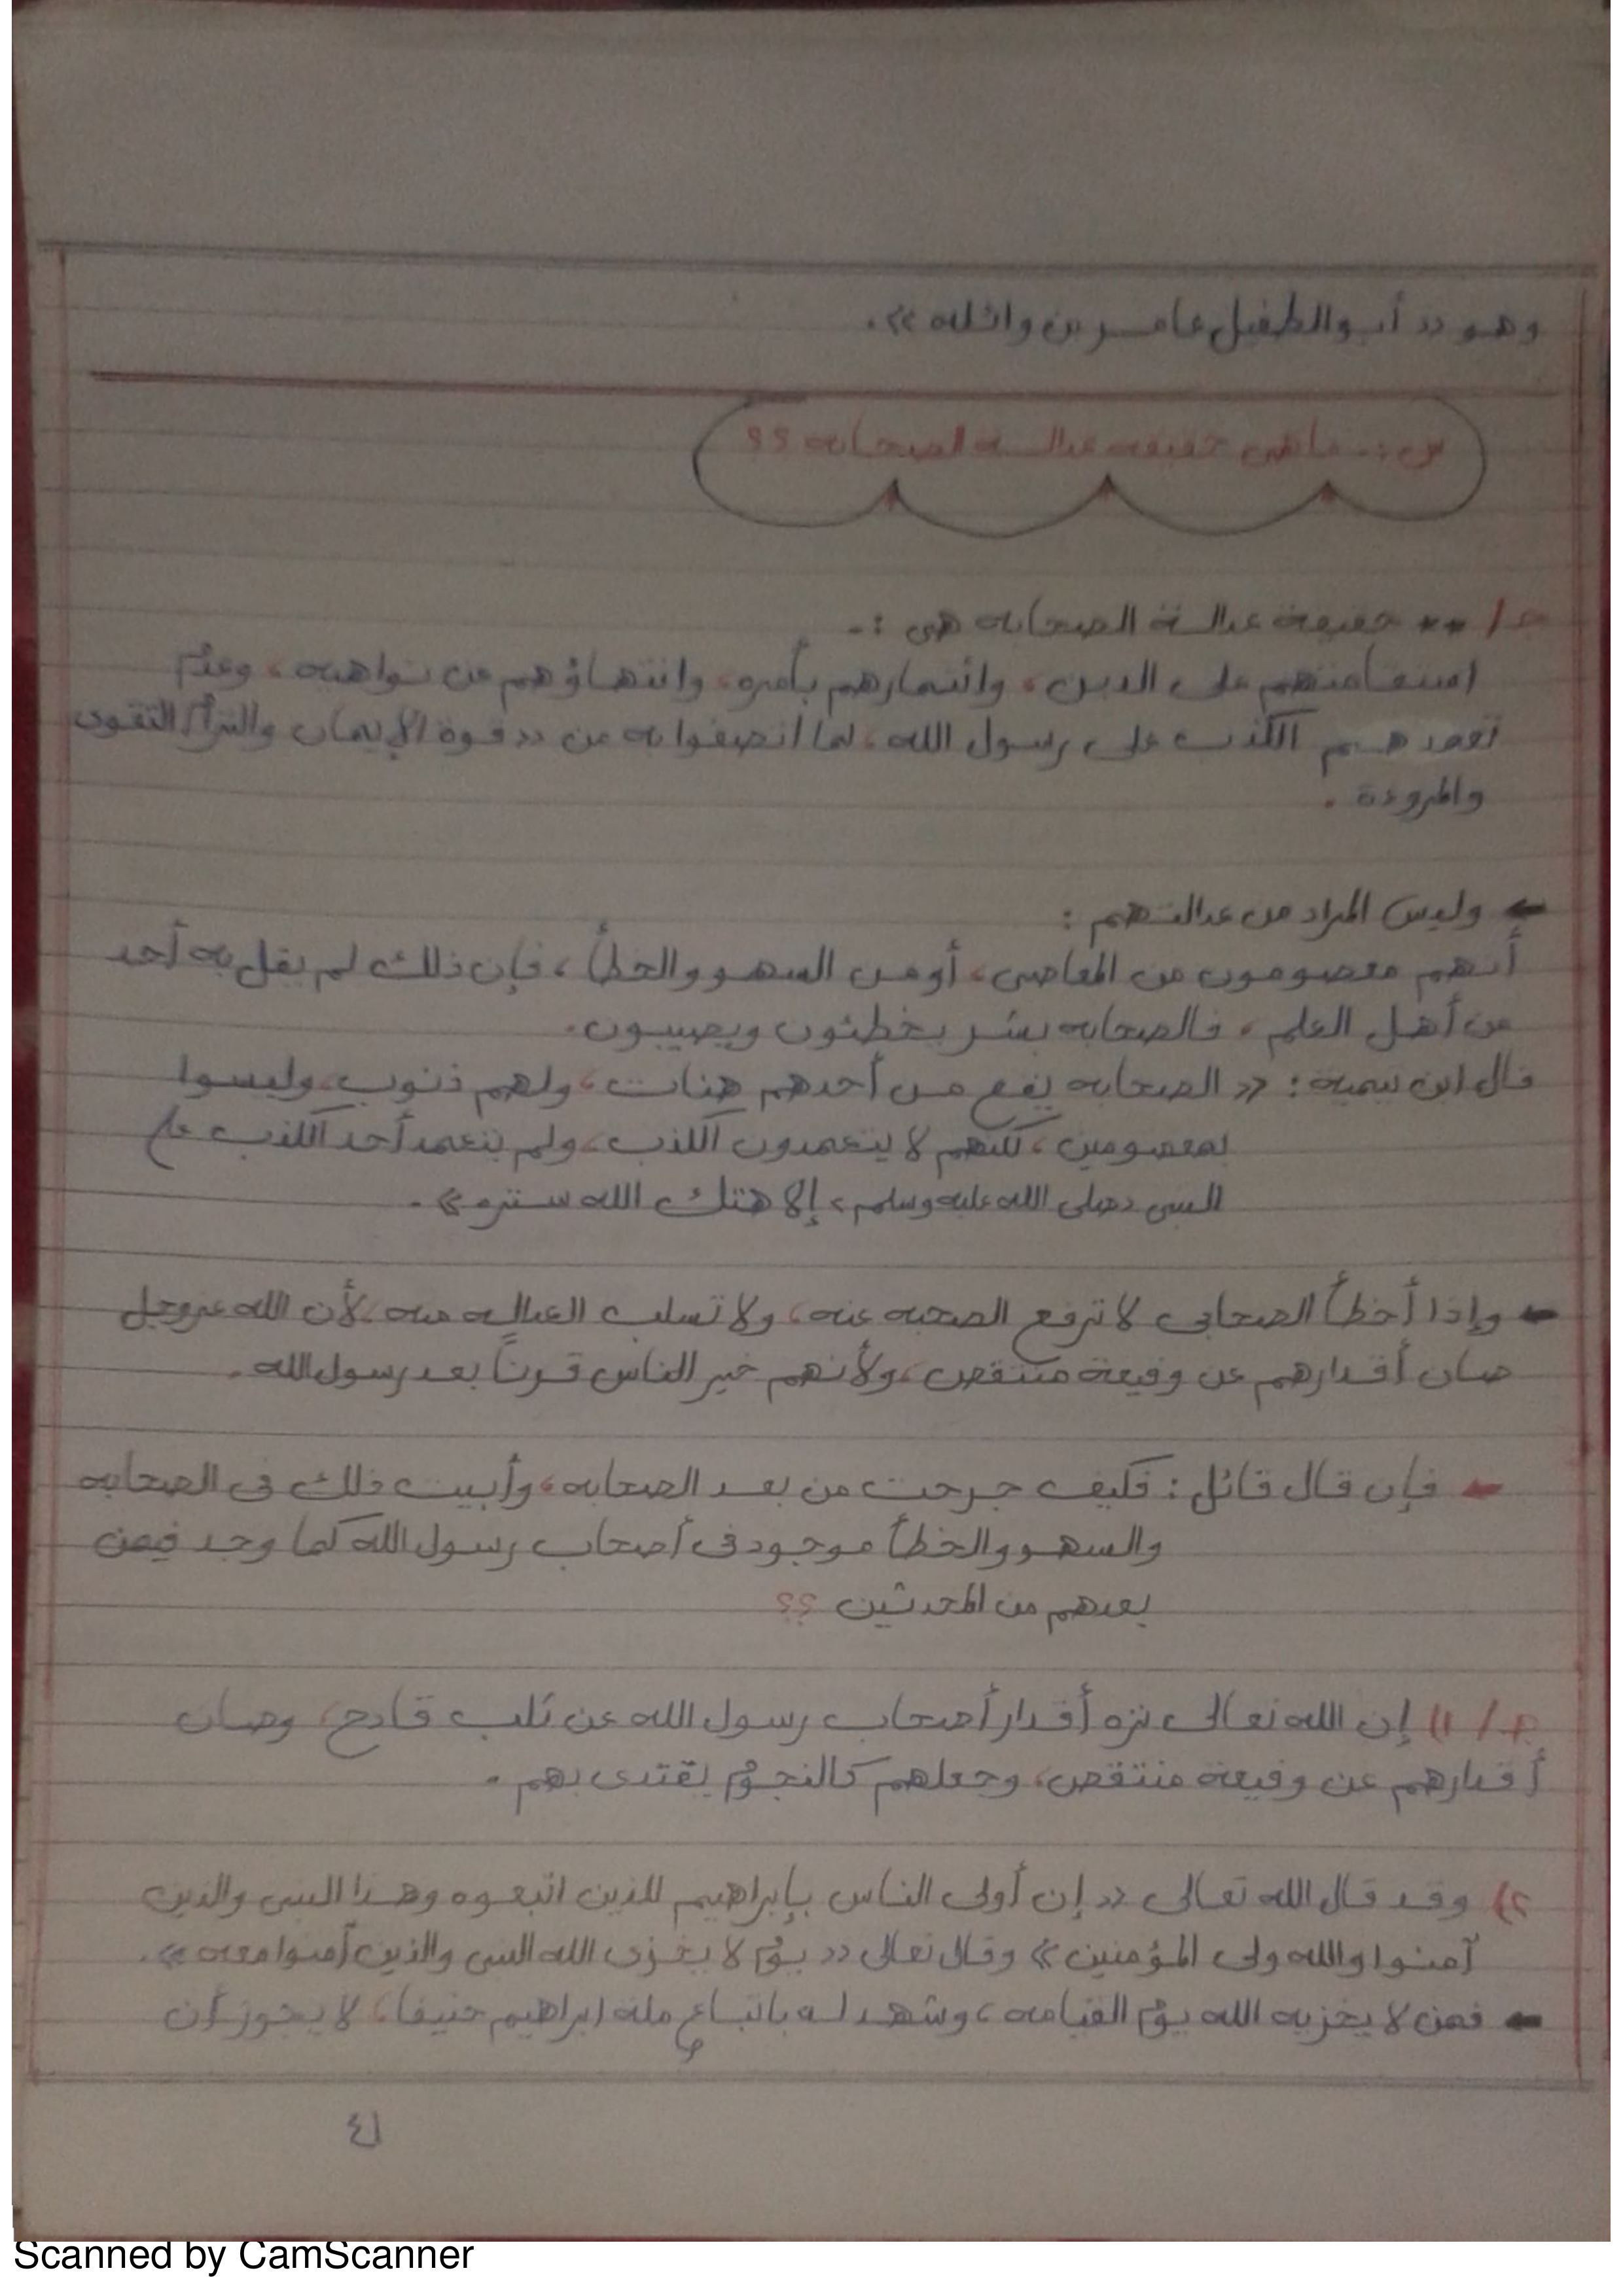 وهو « أبو الطفيل عامر بن واثله ».
س :- ما هي حقيقه عدالـة الصحابه ؟؟
جـ / ** حقيقة عدالـة الصحابه هى :-
استقامتهم على الدين ، وائتمارهم بأمره ، وانتهاؤهم عن نواهيه ، وعدم
تعمدهـم الكذب على رسول الله ، لما اتصفوا به من « قوة الإيمان والتزام التقوى
والمروءة .
← وليس المراد من عدالتـهم :
أنهم معصومون من المعاصى ، أو من السهو والخطأ ، فإن ذلك لم يقل به أحد
من أهل العلم ، فالصحابه بشر يخطئون ويصيبون .
قال ابن تيمية : « الصحابه يقع من أحدهم هنات ، ولهم ذنوب ، وليسوا
بمعصومين ، لكنهم لا يتعمدون الكذب ، ولم يتعمد أحد الكذب على
النبى «صلى الله عليه وسلم» إلا هتك الله ستره » .
← وإذا أخطأ الصحابى لا ترفع الصحبه عنه ، ولا تسلب العداله منه ، لأن الله عزوجل
صان أقدارهم عن وقيعة منتقص ، ولأنهم خير الناس قرناً بعد رسول الله .
← فإن قال قائل : فكيف جرحت من بعد الصحابه ، وأبيت ذلك فى الصحابه
والسهو والخطأ موجود فى أصحاب رسول الله كما وجد فيمن
بعدهم من المحدثين ؟؟
جـ / ١) إن الله تعالى نزه أقدار أصحاب رسول الله عن ثلب قادح ، وصان
أقدارهم عن وقيعة منتقص ، وجعلهم كالنجوم يقتدى بهم .
٢) وقد قال الله تعالى « إن أولى الناس بإبراهيم للذين اتبعوه وهذا النبى والذين
آمنوا والله ولى المؤمنين » وقال تعالى « يوم لا يخزى الله النبى والذين آمنوا معه » .
← فمن لا يخزيه الله يوم القيامه ، وشهد له باتباع مله ابراهيم حنيفا ، لا يجوز أن
Scanned by CamScanner